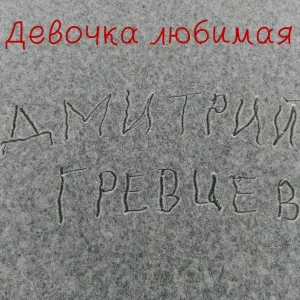 Девочка любимая
ДМИТРИЙ
ГРЕВЦЕВ